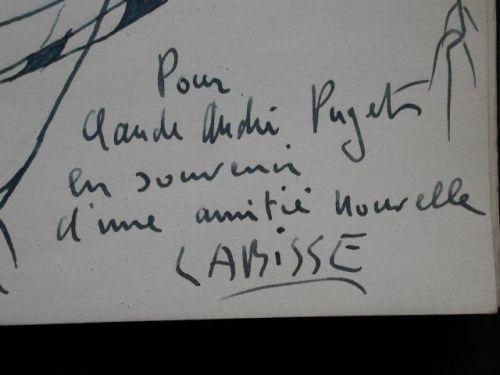 Pour
Claude André Puget
en souvenir
d'une amitié nouvelle
LABISSE